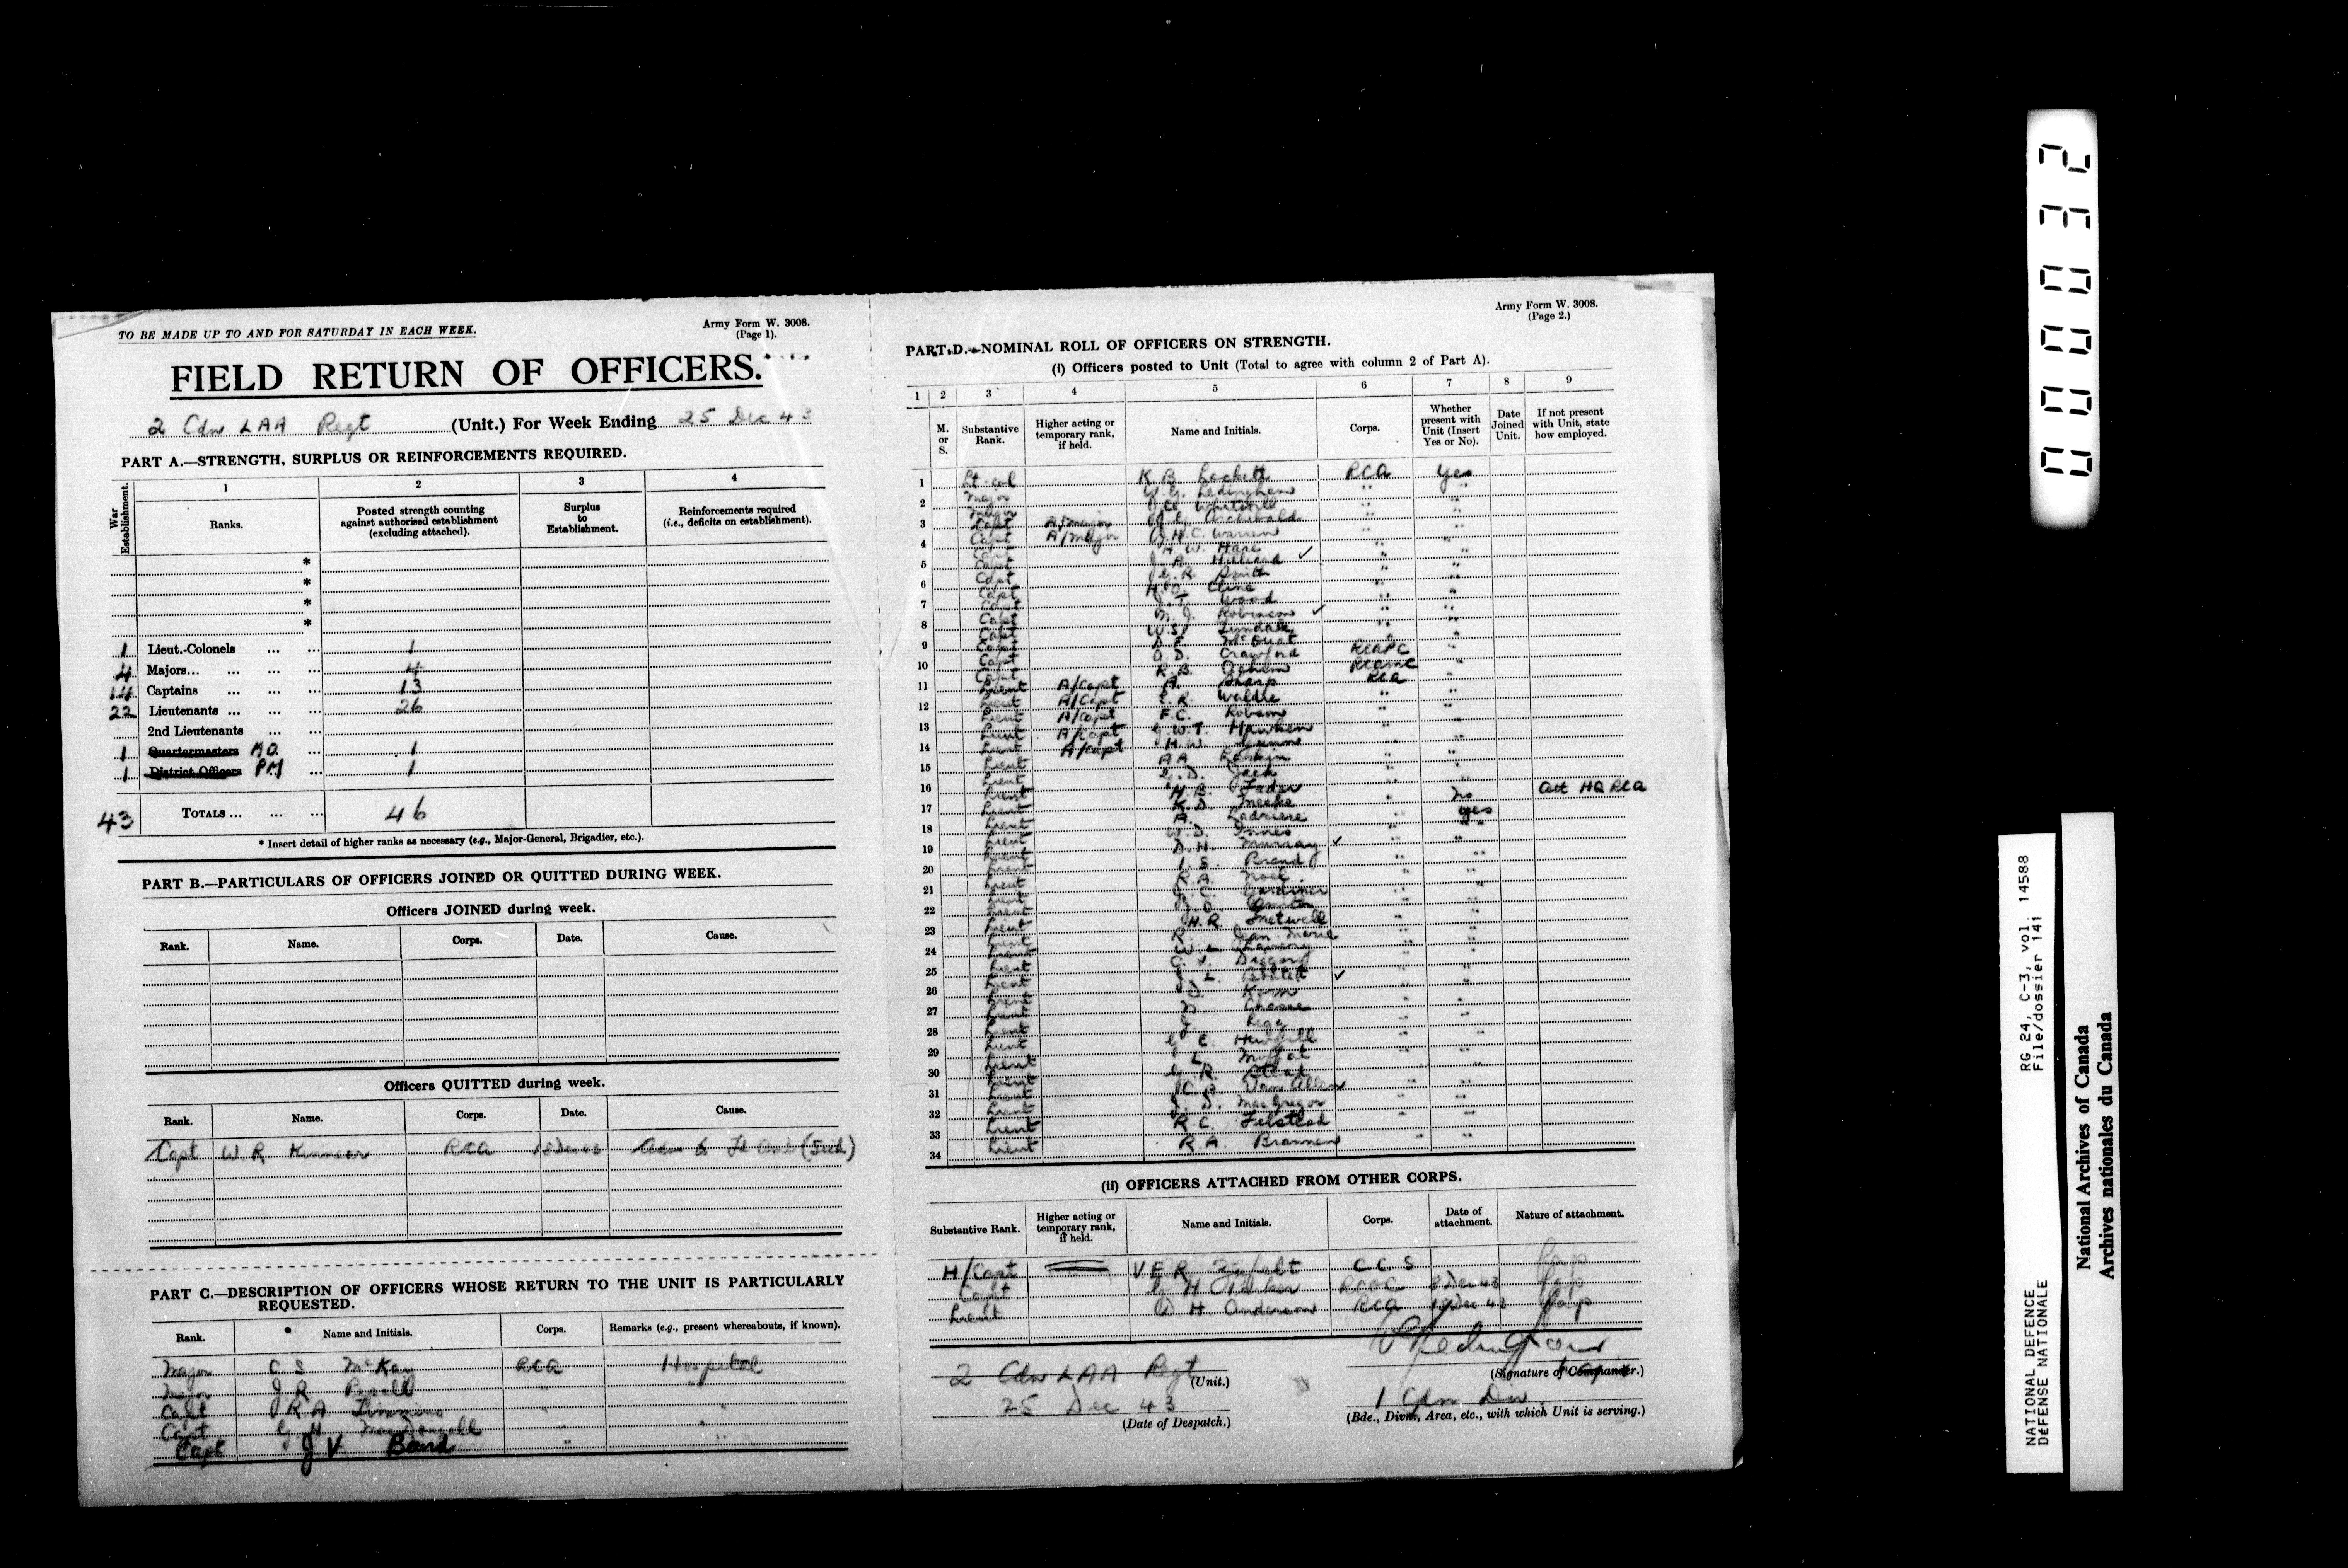 TO BE MADE UP TO AND FOR SATURDAY IN EACH WEEK.
Army Form W. 3008.
(Page 1).
FIELD RETURN OF OFFICERS.
2 Cdn LAA Regt (Unit.) For Week Ending 25 Dec 43
PART A.—STRENGTH, SURPLUS OR REINFORCEMENTS REQUIRED.
War Establishment.
1 2 3 4
Ranks.
Posted strength counting against authorised establishment (excluding attached).
Surplus to Establishment.
Reinforcements required (i.e., deficits on establishment).
*
*
*
*
1 Lieut.-Colonels ... ... 1
4 Majors... ... ... ... 4
14 Captains ... ... ... 13
22 Lieutenants ... ... ... 26
2nd Lieutenants ... ...
1 Quartermasters M.O. ... 1
1 District Officers PM ... 1
43 TOTALS ... ... ... 46
* Insert detail of higher ranks as necessary (e.g., Major-General, Brigadier, etc.).
PART B.—PARTICULARS OF OFFICERS JOINED OR QUITTED DURING WEEK.
Officers JOINED during week.
Rank. Name. Corps. Date. Cause.
Officers QUITTED during week.
Rank. Name. Corps. Date. Cause.
Capt W R Kinnear RCA
PART C.—DESCRIPTION OF OFFICERS WHOSE RETURN TO THE UNIT IS PARTICULARLY
REQUESTED.
Rank. Name and Initials. Corps. Remarks (e.g., present whereabouts, if known).
Major C S McKay RCA Hospital
Major J R
Capt J R A Timmins
Capt G H MacDonnell
Capt J V Baird
Army Form W. 3008.
(Page 2.)
PART D.—NOMINAL ROLL OF OFFICERS ON STRENGTH.
(i) Officers posted to Unit (Total to agree with column 2 of Part A).
1 2 3 4 5 6 7 8 9
M. or S.
Substantive Rank.
Higher acting or temporary rank, if held.
Name and Initials.
Corps.
Whether present with Unit (Insert Yes or No).
Date Joined Unit.
If not present with Unit, state how employed.
1 Lt-Col K B Lockett RCA Yes
2 Major W.G. Ledingham
Major Whitehill
3 Capt A/Major Archibald
4 Capt A/Major H.C. Warren
Capt A W. Hare ✓
5 Capt J. R. Hilliard
6 Capt R. Smith
Capt H.O. Cline
7 Capt Wood
Capt M. J. Robinson ✓
8 Capt W.S.
9 Capt D F. McQuat
Capt A. D. Crawford RCAPC
10 Capt R. B. RCAMC
11 Lieut A/Capt A. Sharp RCA
12 Lieut A/Capt E. R. Waldie
Lieut A/Capt F.C. Robson
13 Lieut A/Capt W.T. Hawken
14 Lieut A/Capt H.W.
15 Lieut A A Rankin
Lieut G. D. Jack
16 Lieut H.B. Fader No Att HQ RCA
17 Lieut K D Meeke Yes
Lieut A. Ladriere
18 Lieut W. D. Innes
19 Lieut D. H. Murray ✓
20 Lieut I. S. Brand
Lieut R.A. Noel
21 Lieut J. C. Gardiner
22 Lieut
Lieut H.R. Smetwell
23 Lieut R. Jean Marie
24 Lieut W. L.
25 Lieut C. V. Diggory
Lieut L. ✓
26 Lieut
27 Lieut Chasse
28 Lieut J.
Lieut G E
29 Lieut L. Moffat
30 Lieut G R.
31 Lieut C B Van Allen
32 Lieut J. D. MacGregor
33 Lieut R C. Felstead
34 Lieut R.A. Brannen
(ii) OFFICERS ATTACHED FROM OTHER CORPS.
Substantive Rank.
Higher acting or temporary rank, if held.
Name and Initials.
Corps.
Date of attachment.
Nature of attachment.
H/Capt V E R CCS
Capt H
Lieut H Anderson RCA
2 Cdn LAA Regt (Unit.)
(Signature of Commander.)
25 Dec 43
(Date of Despatch.)
1 Cdn Div
(Bde., Divn., Area, etc., with which Unit is serving.)
000032
RG 24, C-3, vol. 14588
File/dossier 141
NATIONAL DEFENCE
DÉFENSE NATIONALE
National Archives of Canada
Archives nationales du Canada